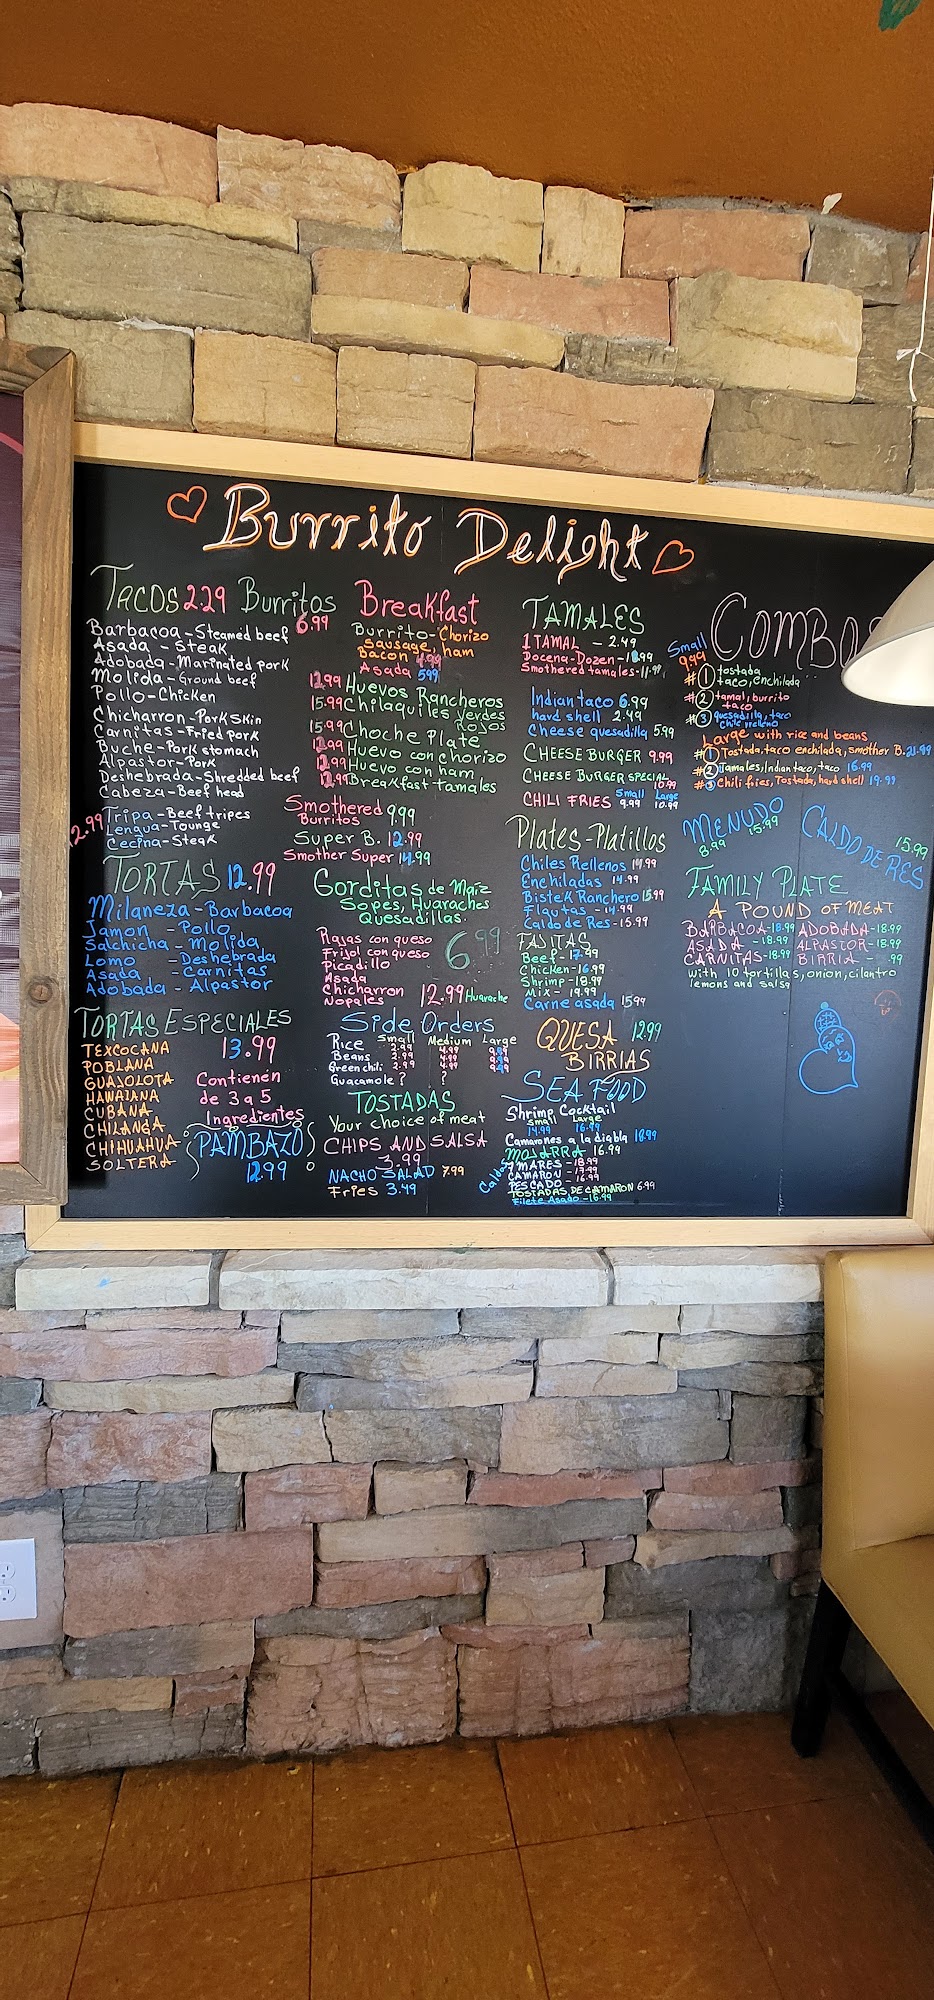 Burrito Delight
TACOS 2.29 Burritos 6.99
Barbacoa-Steamed beef
Asada - Steak
Adobada-Marinated pork
Molida-Ground beef
Pollo-Chicken
Chicharron-Pork Skin
Carnitas-Fried pork
Buche-Pork stomach
Alpastor-Pork
Deshebrada-Shredded beef
Cabeza-Beef head
2.99 Tripa-Beef tripes
Lengua-Tounge
Cecina-Steak
TORTAS 12.99
Milaneza-Barbacoa
Jamon - Pollo
Salchicha - Molida
Lomo - Deshebrada
Asada - Carnitas
Adobada - Alpastor
TORTAS ESPECIALES
13.99
TEXCOCANA
POBLANA
GUAJOLOTA
HAWAIANA
CUBANA
CHILANGA
CHIHUAHUA
SOLTERA
Contienen
de 3 a 5
Ingredientes
PAMBAZO
12.99
Breakfast
Burrito-Chorizo
Sausage, ham
Bacon
Asada 5.99
Huevos Rancheros
15.99 Chilaquiles Verdes
Rojos
15.99 Choche Plate
Huevo con chorizo
Huevo con ham
Breakfast tamales
Smothered
Burritos 9.99
Super B. 12.99
Smother Super 14.99
Gorditas de Maiz
Sopes, Huaraches
Quesadillas.
6.99
Rajas con queso
Frijol con queso
Picadillo
Asada
Chicharron
Nopales
12.99 Huarache
Side Orders
Small Medium Large
Rice 2.99 4.99
Beans 2.99 4.99
Green chili 2.99 4.99
Guacamole ? ?
TOSTADAS
Your choice of meat
CHIPS AND SALSA
3.99
NACHO SALAD 7.99
Fries 3.49
TAMALES
1 TAMAL - 2.49
Docena-Dozen-
Smothered tamales-11.99
Indian taco 6.99
hard shell 2.49
Cheese quesadilla 5.99
CHEESE BURGER 9.99
CHEESE BURGER SPECIAL 10.99
Small Large
CHILI FRIES 9.99 10.99
Plates-Platillos
Chiles Rellenos 14.99
Enchiladas 14.99
Bistek Ranchero 15.99
Flautas - 14.99
Caldo de Res-15.99
FAJITAS
Beef-17.99
Chicken-16.99
Shrimp-18.99
Mix - 19.99
Carne asada 15.99
QUESA 12.99
BIRRIAS
SEA FOOD
Shrimp Cocktail
Small Large
14.99 16.99
Camarones a la diabla 18.99
MOJARRA 16.99
Caldos
7 MARES - 18.99
CAMARON - 17.99
PESCADO - 16.99
TOSTADAS DE CAMARON 6.99
Filete Asado - 16.99
COMBOS
Small
9.99
#1 tostada
taco, enchilada
#2 tamal, burrito
taco
#3 quesadilla, taco
chile relleno
Large with rice and beans
#1 Tostada, taco enchilada, smother B. 21.99
#2 Tamales, Indian taco, taco 16.99
#3 Chili fries, Tostada, hard shell 19.99
MENUDO
8.99 15.99
CALDO DE RES
15.99
FAMILY PLATE
A POUND OF MEAT
BARBACOA-18.99 ADOBADA-18.99
ASADA - 18.99 ALPASTOR-18.99
CARNITAS-18.99 BIRRIA -
with 10 tortillas, onion, cilantro
lemons and salsa